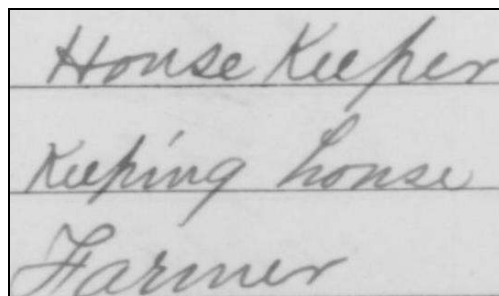 House Keeper
Keeping house
Farmer